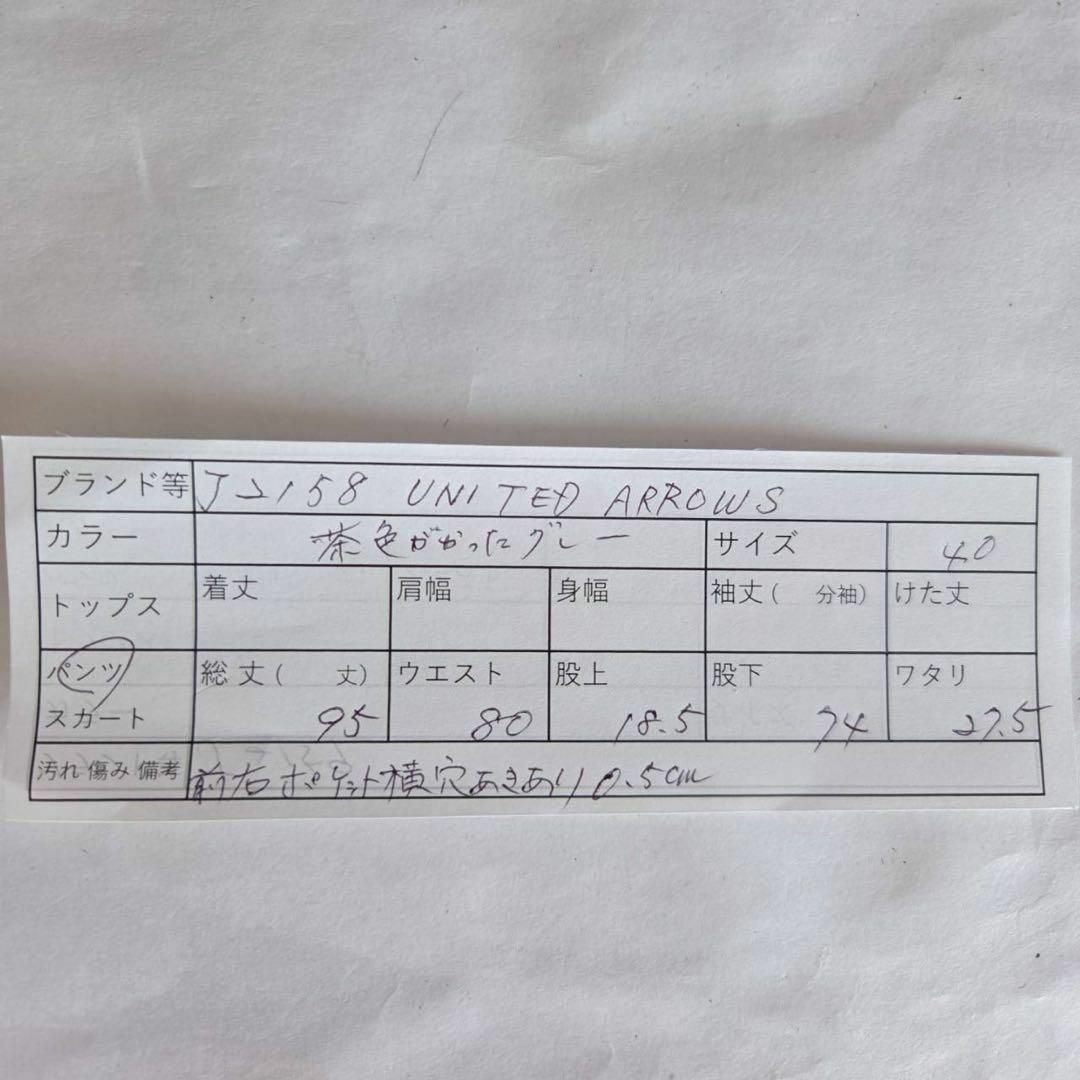 ブランド等 J2158 UNITED ARROWS
カラー 茶色がかったグレー サイズ 40
トップス 着丈 肩幅 身幅 袖丈( 分袖) けた丈
パンツ 総丈( 丈) ウエスト 股上 股下 ワタリ
スカート 95 80 18.5 74 27.5
汚れ 傷み 備考 前右ポケット横穴あきあり 0.5cm